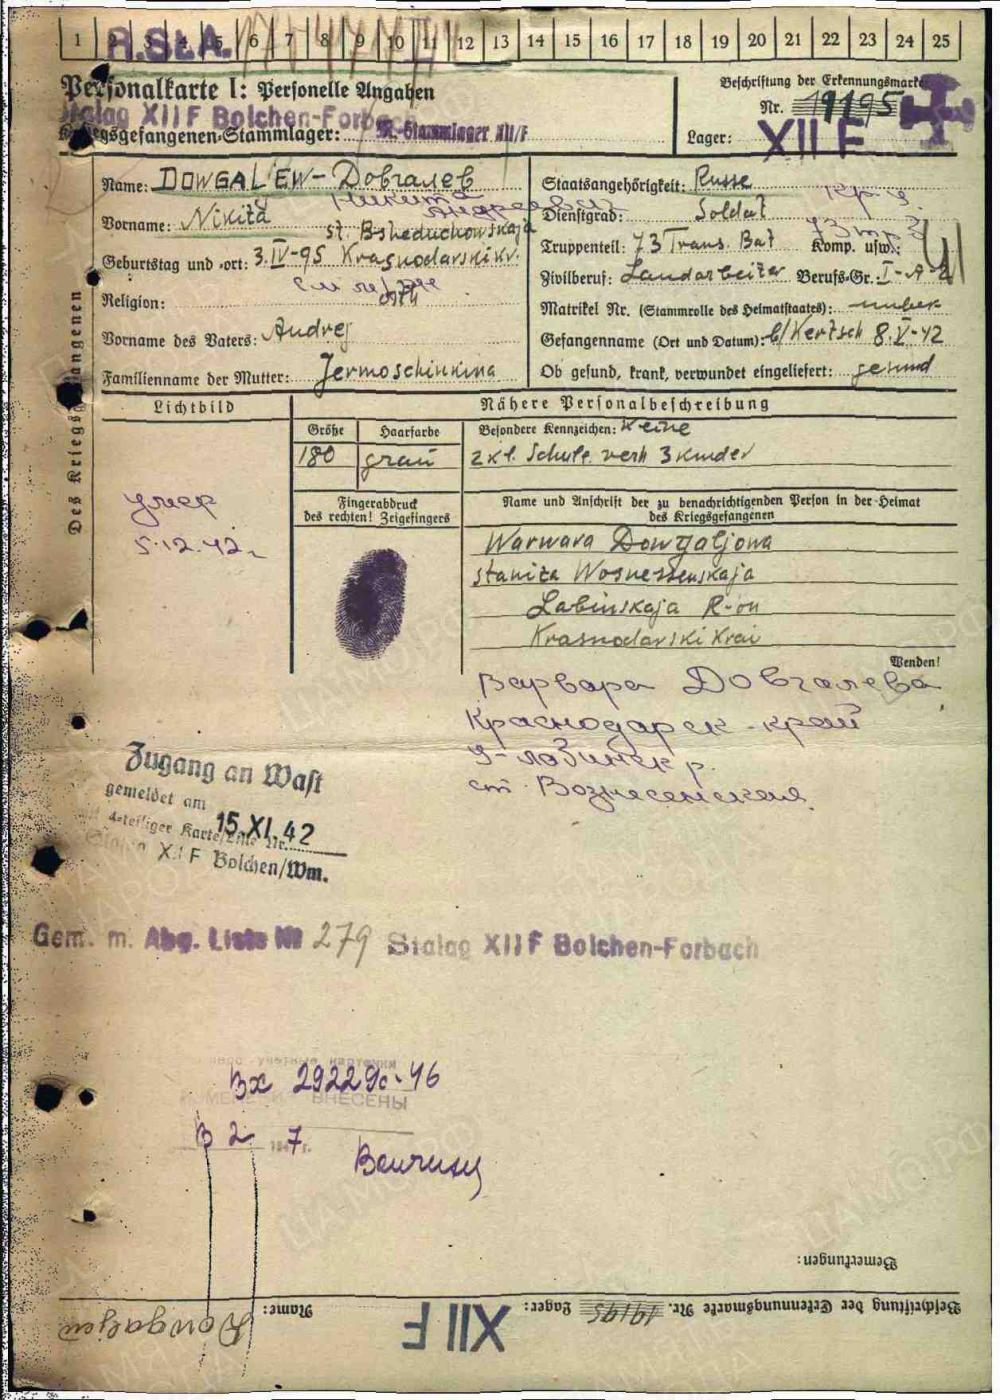 1 2 3 4 5 6 7 8 9 10 11 12 13 14 15 16 17 18 19 20 21 22 23 24 25
R.SLA.
Personalkarte I: Personelle Angaben
Beschriftung der Erkennungsmarke
Stalag XII F Bolchen-Forbach
Nr. 19195
Kriegsgefangenen-Stammlager: M.-Stammlager XII/F
Lager: XII F
Name: DOWGAL'EW - Довгалев
Staatsangehörigkeit: Russe
Никита Андреевич
кр-ц
Vorname: Nikita
Dienstgrad: Soldat
st. Bsheduchowskaja
73
Truppenteil: 73 Trans. Bat Komp. usw.:
Geburtstag und -ort: 3.IV-95 Krasnodarski kr.
Zivilberuf: Landarbeiter Berufs-Gr.: I-A-2
Religion: orth
Matrikel Nr. (Stammrolle des Heimatstaates): unbek
Vorname des Vaters: Andrej
Gefangenname (Ort und Datum): b/Kertsch 8.V-42
Familienname der Mutter: Jermoschinkina
Ob gesund, krank, verwundet eingeliefert: gesund
Des Kriegsgefangenen
Lichtbild
Nähere Personalbeschreibung
Größe Haarfarbe Besondere Kennzeichen: Keine
180 grau 2 kl. Schule verh 3 Kinder
Fingerabdruck
des rechten! Zeigefingers
Name und Anschrift der zu benachrichtigenden Person in der Heimat
des Kriegsgefangenen
умер
5.12.42г
Warwara Dowgaljowa
staniza Wosnessenskaja
Labinskaja R-on
Krasnodarski Krai
Wenden!
Варвара Довгалева
Краснодарск. край
р.
ст. Вознесенская
Zugang an Wast
gemeldet am 15.XI.42
mit 4-teiliger Karte/Liste Nr.
Stalag XII F Bolchen/Wm.
Gem. m. Abg. Liste Nr 279 Stalag XII F Bolchen-Forbach
учетные карточки
Вх 29229с-46
ВНЕСЕНЫ
В 2 1947 г.
Bemerkungen:
Beschriftung der Erkennungsmarke Nr. 19195 Lager: XII F Name: Dowgaljew